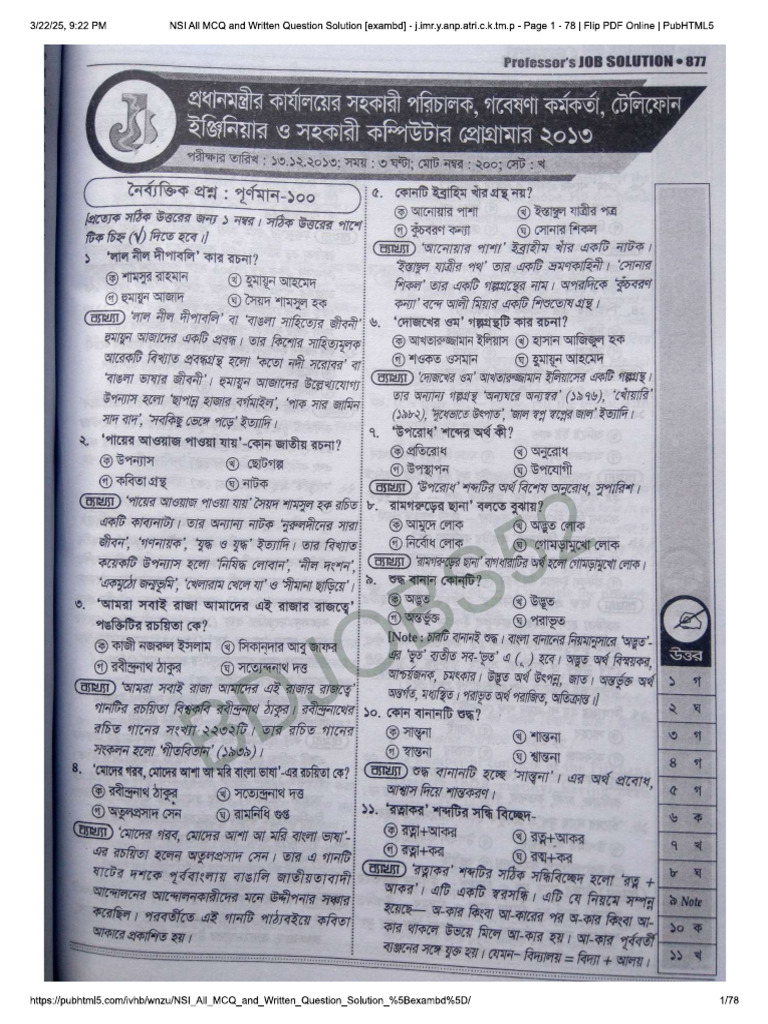 3/22/25, 9:22 PM
NSI All MCQ and Written Question Solution [exambd] - j.imr.y.anp.atri.c.k.tm.p - Page 1 - 78 | Flip PDF Online | PubHTML5
Professor's JOB SOLUTION • 877
প্রধানমন্ত্রীর কার্যালয়ের সহকারী পরিচালক, গবেষণা কর্মকর্তা, টেলিফোন
ইঞ্জিনিয়ার ও সহকারী কম্পিউটার প্রোগ্রামার ২০১৩
পরীক্ষার তারিখ : ১৩.১২.২০১৩; সময় : ৩ ঘণ্টা; মোট নম্বর : ২০০; সেট : খ
নৈর্ব্যক্তিক প্রশ্ন : পূর্ণমান-১০০
[প্রত্যেক সঠিক উত্তরের জন্য ১ নম্বর। সঠিক উত্তরের পাশে
টিক চিহ্ন (√) দিতে হবে।]
১ 'লাল নীল দীপাবলি' কার রচনা?
ক শামসুর রাহমান খ হুমায়ূন আহমেদ
গ হুমায়ুন আজাদ ঘ সৈয়দ শামসুল হক
ব্যাখ্যা 'লাল নীল দীপাবলি' বা 'বাঙলা সাহিত্যের জীবনী'
হুমায়ুন আজাদের একটি প্রবন্ধ। তার কিশোর সাহিত্যমূলক
আরেকটি বিখ্যাত প্রবন্ধগ্রন্থ হলো 'কতো নদী সরোবর' বা
'বাঙলা ভাষার জীবনী'। হুমায়ুন আজাদের উল্লেখযোগ্য
উপন্যাস হলো 'ছাপ্পান্ন হাজার বর্গমাইল', 'পাক সার জামিন
সাদ বাদ', 'সবকিছু ভেঙ্গে পড়ে' ইত্যাদি।
২. 'পায়ের আওয়াজ পাওয়া যায়'-কোন জাতীয় রচনা?
ক উপন্যাস খ ছোটগল্প
গ কবিতা গ্রন্থ ঘ নাটক
ব্যাখ্যা 'পায়ের আওয়াজ পাওয়া যায়' সৈয়দ শামসুল হক রচিত
একটি কাব্যনাট্য। তার অন্যান্য নাটক 'নুরুলদীনের সারা
জীবন', 'গণনায়ক', 'যুদ্ধ ও যুদ্ধ' ইত্যাদি। তার বিখ্যাত
কয়েকটি উপন্যাস হলো 'নিষিদ্ধ লোবান', 'নীল দংশন',
'একমুঠো জন্মভূমি', 'খেলারাম খেলে যা' ও 'সীমানা ছাড়িয়ে'।
৩. 'আমরা সবাই রাজা আমাদের এই রাজার রাজত্বে'
পঙক্তিটির রচয়িতা কে?
ক কাজী নজরুল ইসলাম খ সিকান্দার আবু জাফর
গ রবীন্দ্রনাথ ঠাকুর ঘ সত্যেন্দ্রনাথ দত্ত
ব্যাখ্যা 'আমরা সবাই রাজা আমাদের এই রাজার রাজত্বে'
গানটির রচয়িতা বিশ্বকবি রবীন্দ্রনাথ ঠাকুর। রবীন্দ্রনাথের
রচিত গানের সংখ্যা ২২৩২টি। তার রচিত গানের
সংকলন হলো 'গীতবিতান' (১৯৩৯)।
৪. 'মোদের গরব, মোদের আশা আ মরি বাংলা ভাষা'-এর রচয়িতা কে?
ক রবীন্দ্রনাথ ঠাকুর খ সত্যেন্দ্রনাথ দত্ত
গ অতুলপ্রসাদ সেন ঘ রামনিধি গুপ্ত
ব্যাখ্যা 'মোদের গরব, মোদের আশা আ মরি বাংলা ভাষা'-
এর রচয়িতা হলেন অতুলপ্রসাদ সেন। তার এ গানটি
ষাটের দশকে পূর্ববাংলায় বাঙালি জাতীয়তাবাদী
আন্দোলনের আন্দোলনকারীদের মনে উদ্দীপনার সঞ্চার
করেছিল। পরবর্তীতে এই গানটি পাঠ্যবইয়ে কবিতা
আকারে প্রকাশিত হয়।
৫. কোনটি ইব্রাহিম খাঁর গ্রন্থ নয়?
ক আনোয়ার পাশা খ ইস্তাম্বুল যাত্রীর পত্র
গ কুঁচবরণ কন্যা ঘ সোনার শিকল
ব্যাখ্যা 'আনোয়ার পাশা' ইব্রাহীম খাঁর একটি নাটক।
'ইস্তাম্বুল যাত্রীর পথ' তার একটি ভ্রমণকাহিনী। 'সোনার
শিকল' তার একটি গল্পগ্রন্থের নাম। অপরদিকে 'কুঁচবরণ
কন্যা' বন্দে আলী মিয়ার একটি শিশুতোষ গ্রন্থ।
৬. 'দোজখের ওম' গল্পগ্রন্থটি কার রচনা?
ক আখতারুজ্জামান ইলিয়াস খ হাসান আজিজুল হক
গ শওকত ওসমান ঘ হুমায়ূন আহমেদ
ব্যাখ্যা 'দোজখের ওম' আখতারুজ্জামান ইলিয়াসের একটি গল্পগ্রন্থ।
তার অন্যান্য গল্পগ্রন্থ 'অন্যঘরে অন্যস্বর' (১৯৭৬), 'খোঁয়ারি'
(১৯৮২), 'দুধেভাতে উৎপাত', 'জাল স্বপ্ন স্বপ্নের জাল' ইত্যাদি।
৭. 'উপরোধ' শব্দের অর্থ কী?
ক প্রতিরোধ খ অনুরোধ
গ উপস্থাপন ঘ উপযোগী
ব্যাখ্যা 'উপরোধ' শব্দটির অর্থ বিশেষ অনুরোধ, সুপারিশ।
৮. রামগরুড়ের ছানা' বলতে বুঝায়?
ক আমুদে লোক খ অদ্ভুত লোক
গ নির্বোধ লোক ঘ গোমড়ামুখো লোক
ব্যাখ্যা 'রামগরুড়ের ছানা' বাগধারাটির অর্থ হলো গোমড়ামুখো লোক।
৯. শুদ্ধ বানান কোনটি?
ক অদ্ভুত খ উদ্ভূত
গ অন্তর্ভুক্ত ঘ পরাভূত
[Note : চারটি বানানই শুদ্ধ। বাংলা বানানের নিয়মানুসারে 'অদ্ভুত'-
এর 'ভুত' ব্যতীত সব-'ভূত' এ ( ূ ) হবে। অদ্ভুত অর্থ বিস্ময়কর,
আশ্চর্যজনক, চমৎকার। উদ্ভূত অর্থ উৎপন্ন, জাত। অন্তর্ভুক্ত অর্থ
অন্তর্গত, মধ্যস্থিত। পরাভূত অর্থ পরাজিত, অতিক্রান্ত।]
১০. কোন বানানটি শুদ্ধ?
ক সান্ত্বনা খ শান্তনা
গ স্বান্তনা ঘ শ্বান্তনা
ব্যাখ্যা শুদ্ধ বানানটি হচ্ছে 'সান্ত্বনা'। এর অর্থ প্রবোধ,
আশ্বাস দিয়ে শান্তকরণ।
১১. 'রত্নাকর' শব্দটির সন্ধি বিচ্ছেদ-
ক রত্না+আকর খ রত্ন+আকর
গ রত্না+কর ঘ রত্ন+কর
ব্যাখ্যা 'রত্নাকর' শব্দটির সঠিক সন্ধিবিচ্ছেদ হলো 'রত্ন +
আকর'। এটি একটি স্বরসন্ধি। এটি যে নিয়মে সম্পন্ন
হয়েছে— অ-কার কিংবা আ-কারের পর অ-কার কিংবা আ-
কার থাকলে উভয়ে মিলে আ-কার হয়। আ-কার পূর্ববর্তী
ব্যঞ্জনের সঙ্গে যুক্ত হয়। যেমন– বিদ্যালয় = বিদ্যা + আলয়।
উত্তর
১ গ
২ ঘ
৩ গ
৪ গ
৫ গ
৬ ক
৭ খ
৮ ঘ
৯ Note
১০ ক
১১ খ
BDJOBS52
https://pubhtml5.com/ivhb/wnzu/NSI_All_MCQ_and_Written_Question_Solution_%5Bexambd%5D/
1/78